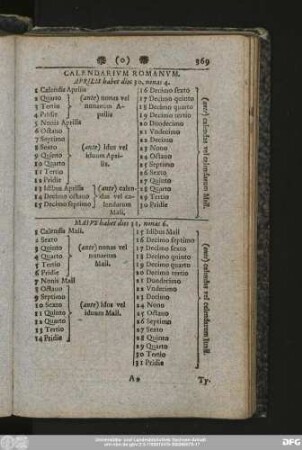 (0) 369
CALENDARIVM ROMANVM.
APRILIS habet dies 30. nonas 4.
1 Calendis Aprilis
2 Quarto
3 Tertio
4 Pridie
(ante) nonas vel nonarum Aprilis
5 Nonis Aprilis
6 Octavo
7 Septimo
8 Sexto
9 Quinto
10 Quarto
11 Tertio
12 Pridie
(ante) Idus vel Iduum Aprilis.
13 Idibus Aprilis
14 Decimo octavo
15 Decimo septimo
(ante) calendas vel calendarum Maii.
16 Decimo sexto
17 Decimo quinto
18 Decimo quarto
19 Decimo tertio
20 Duodecimo
21 Vndecimo
22 Decimo
23 Nono
24 Octavo
25 Septimo
26 Sexto
27 Quinto
28 Quarto
29 Tertio
30 Pridie
(ante) calendas vel calendarum Maii.
MAIVS habet dies 31. nonas 6.
1 Calendis Maii.
2 Sexto
3 Quinto
4 Quarto
5 Tertio
6 Pridie
(ante) nonas vel nonarum Maii.
7 Nonis Maii
8 Octavo
9 Septimo
10 Sexto
11 Quinto
12 Quarto
13 Tertio
14 Pridie
(ante) Idus vel Iduum Maii.
15 Idibus Maii
16 Decimo septimo
17 Decimo sexto
18 Decimo quinto
19 Decimo quarto
20 Decimo tertio
21 Duodecimo
22 Vndecimo
23 Decimo
24 Nono
25 Octavo
26 Septimo
27 Sexto
28 Quinto
29 Quarto
30 Tertio
31 Pridie
(ante) calendas vel calendarum Iunii.
Aa Ty-